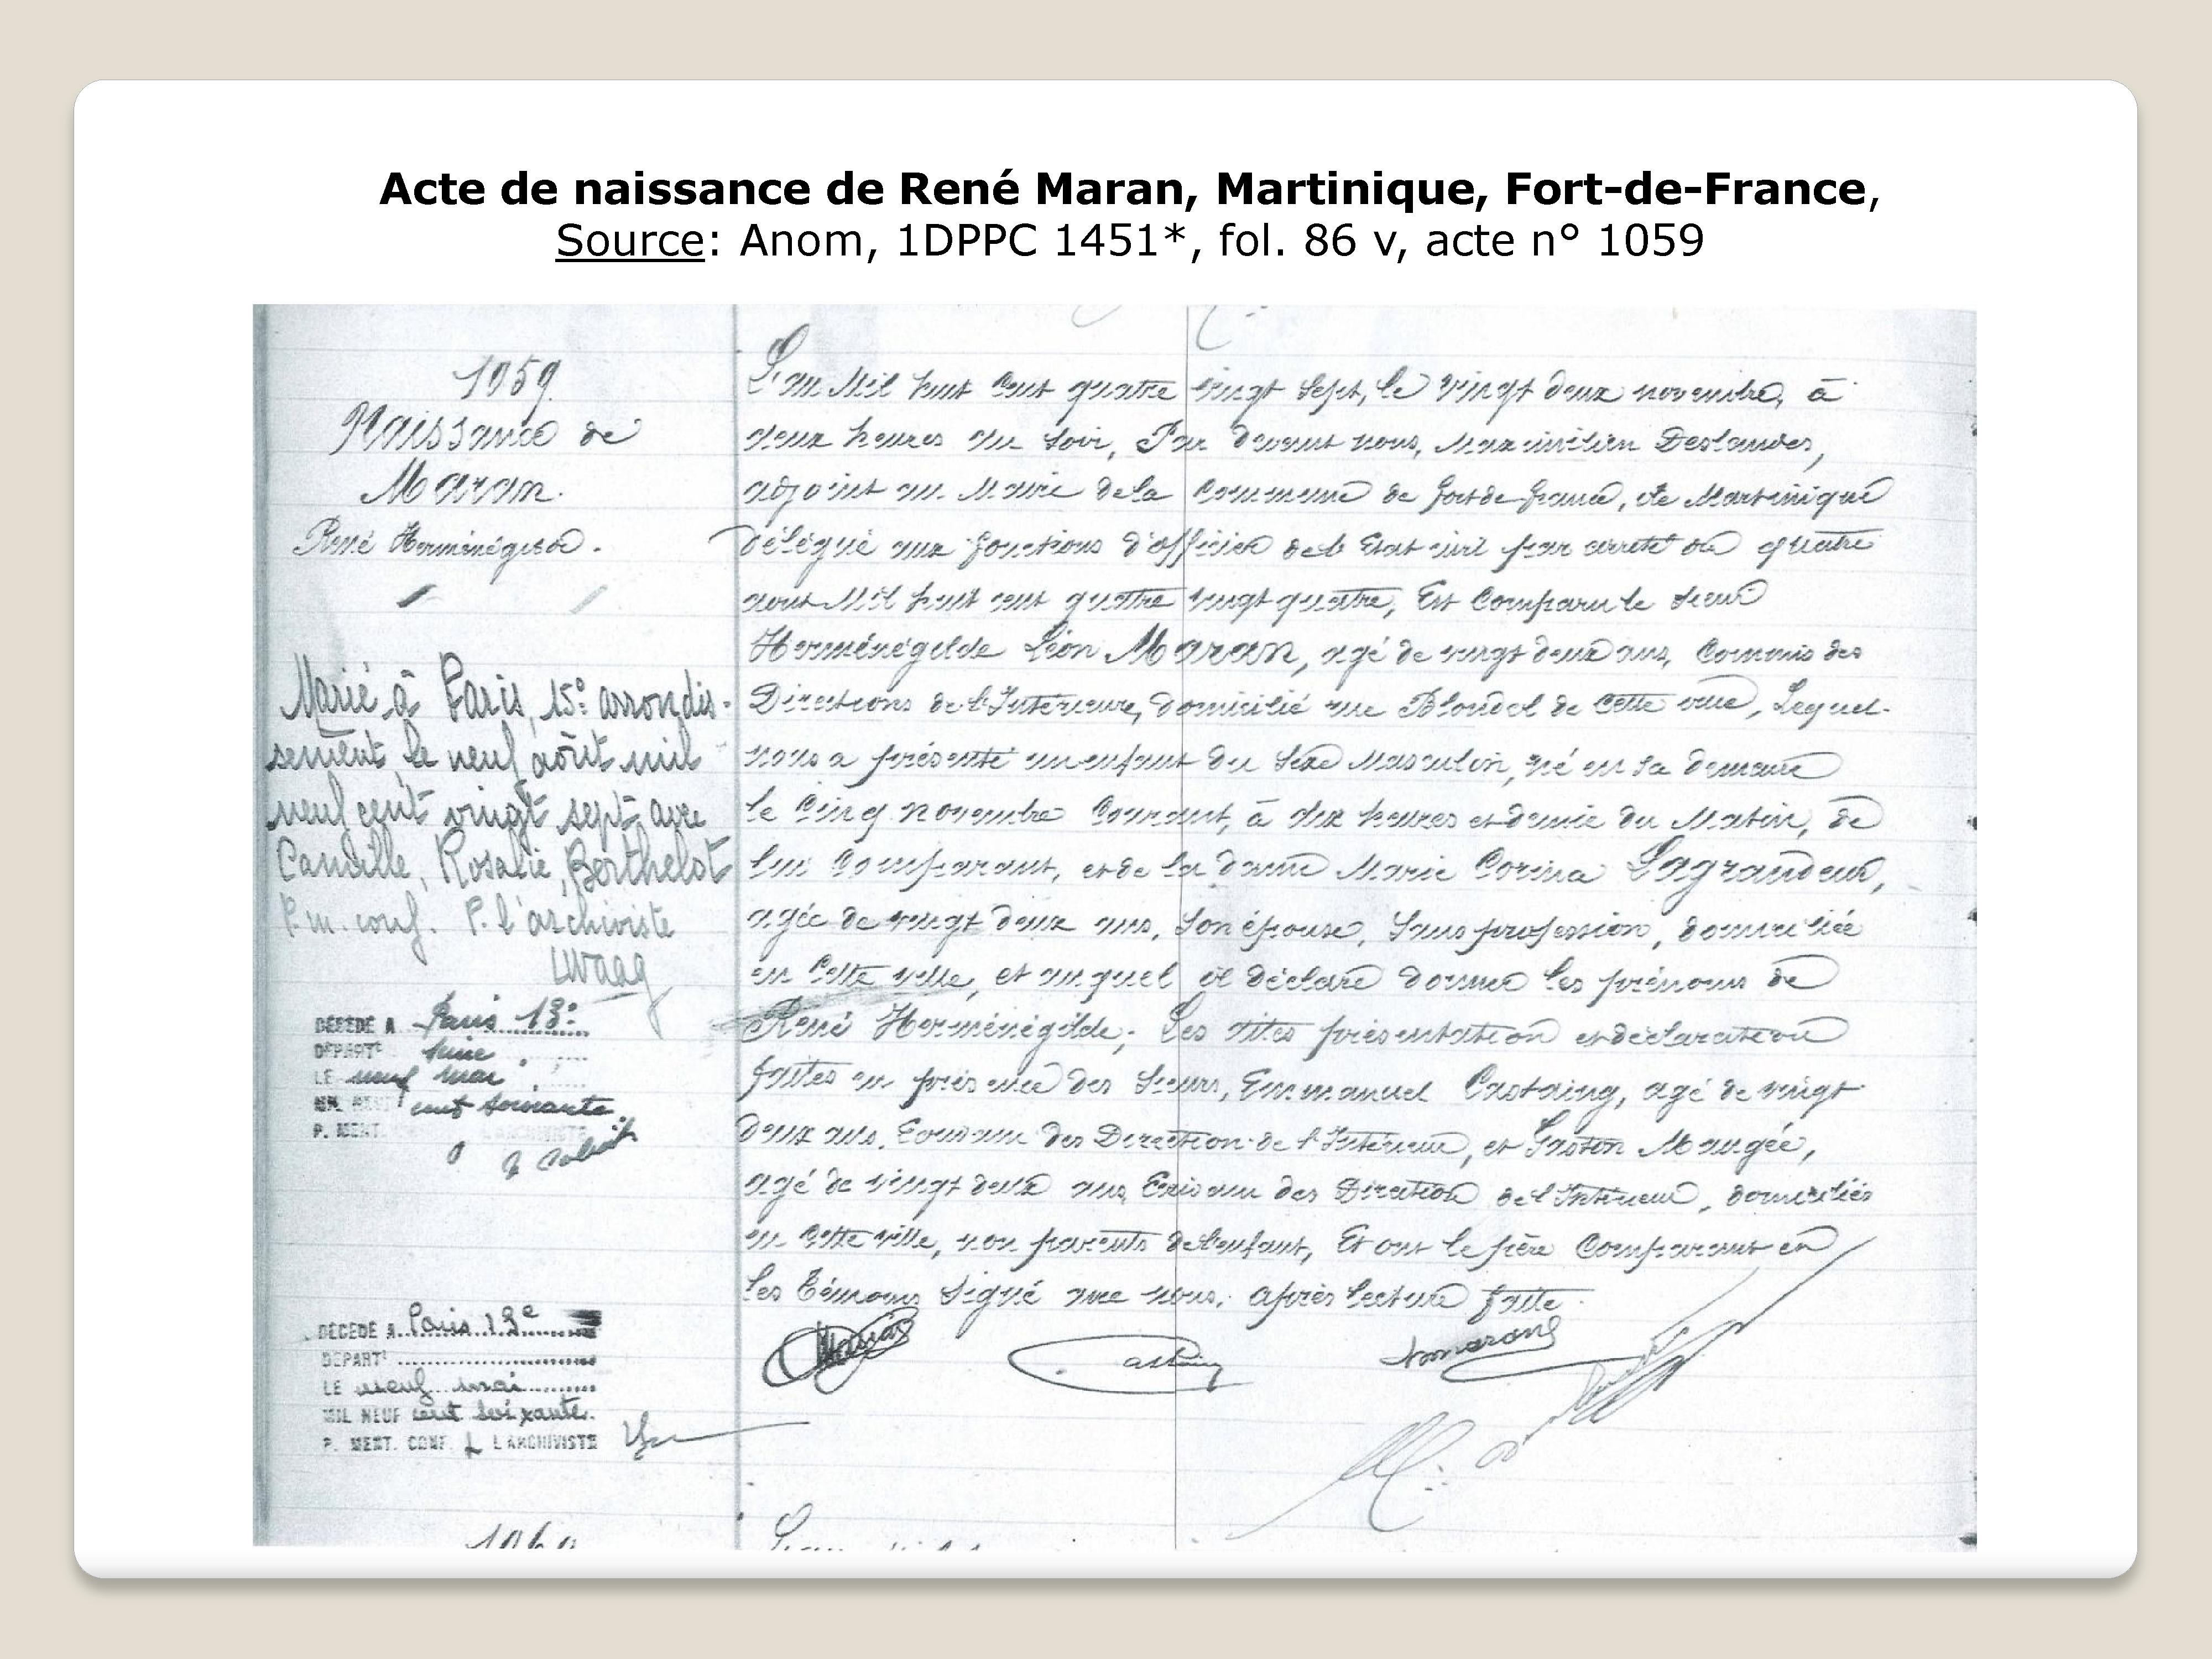 Acte de naissance de René Maran, Martinique, Fort-de-France,
Source: Anom, 1DPPC 1451*, fol. 86 v, acte n° 1059
1059
Naissance de
Maran.
René Herménégilde.
Marié à Paris, 15e arrondis-
sement le neuf août mil
neuf cent vingt sept avec
Camille, Rosalie, Berthelot
P. m. conf. P. l'archiviste
DÉCÉDÉ A Paris 13e
DÉPART Seine
LE neuf mai
cent soixante
P. MENT. L'ARCHIVISTE
DÉCÉDÉ A Paris 13e
DÉPART
LE neuf mai
MIL NEUF cent soixante.
P. MENT. CONF. L'ARCHIVISTE
1060
L'an Mil huit Cent quatre vingt Sept, le vingt deux novembre, à
deux heures du Soir, Par devant nous, Maximilien Deslandes,
adjoint au Maire de la Commune de Fort-de-France, Ile Martinique
délégué aux fonctions d'officier de l'Etat civil par arrêté du quatre
aout Mil huit cent quatre vingt quatre, Est Comparu le sieur
Herménégilde Léon Maran, agé de vingt deux ans, Commis des
Directions de l'Intérieur, domicilié rue Blondel de cette ville, Lequel
nous a présenté un enfant du Sexe Masculin, né en sa demeure
le Cinq novembre Courant, à dix heures et demie du Matin, de
lui Comparant, et de la dame Marie Corina Lagrandeur,
agée de vingt deux ans, Son épouse, Sans profession, domiciliée
en Cette ville, et auquel il déclare donner les prénoms de
René Herménégilde; Les dites présentation et déclaration
faites en présence des Sieurs, Emmanuel Castaing, agé de vingt
deux ans, Ecrivain des Direction de l'Intérieur, et Gaston Maugée,
agé de vingt deux ans, Ecrivain des Direction de l'Intérieur, domiciliés
en Cette ville, non parents de l'enfant, Et ont le père Comparant et
les Témoins Signé avec nous, après lecture faite.